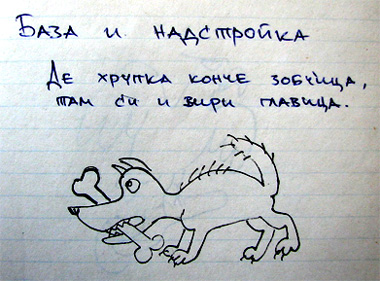 База и надстройка
Де хрупка конче зобчица,
там си и вири главица.